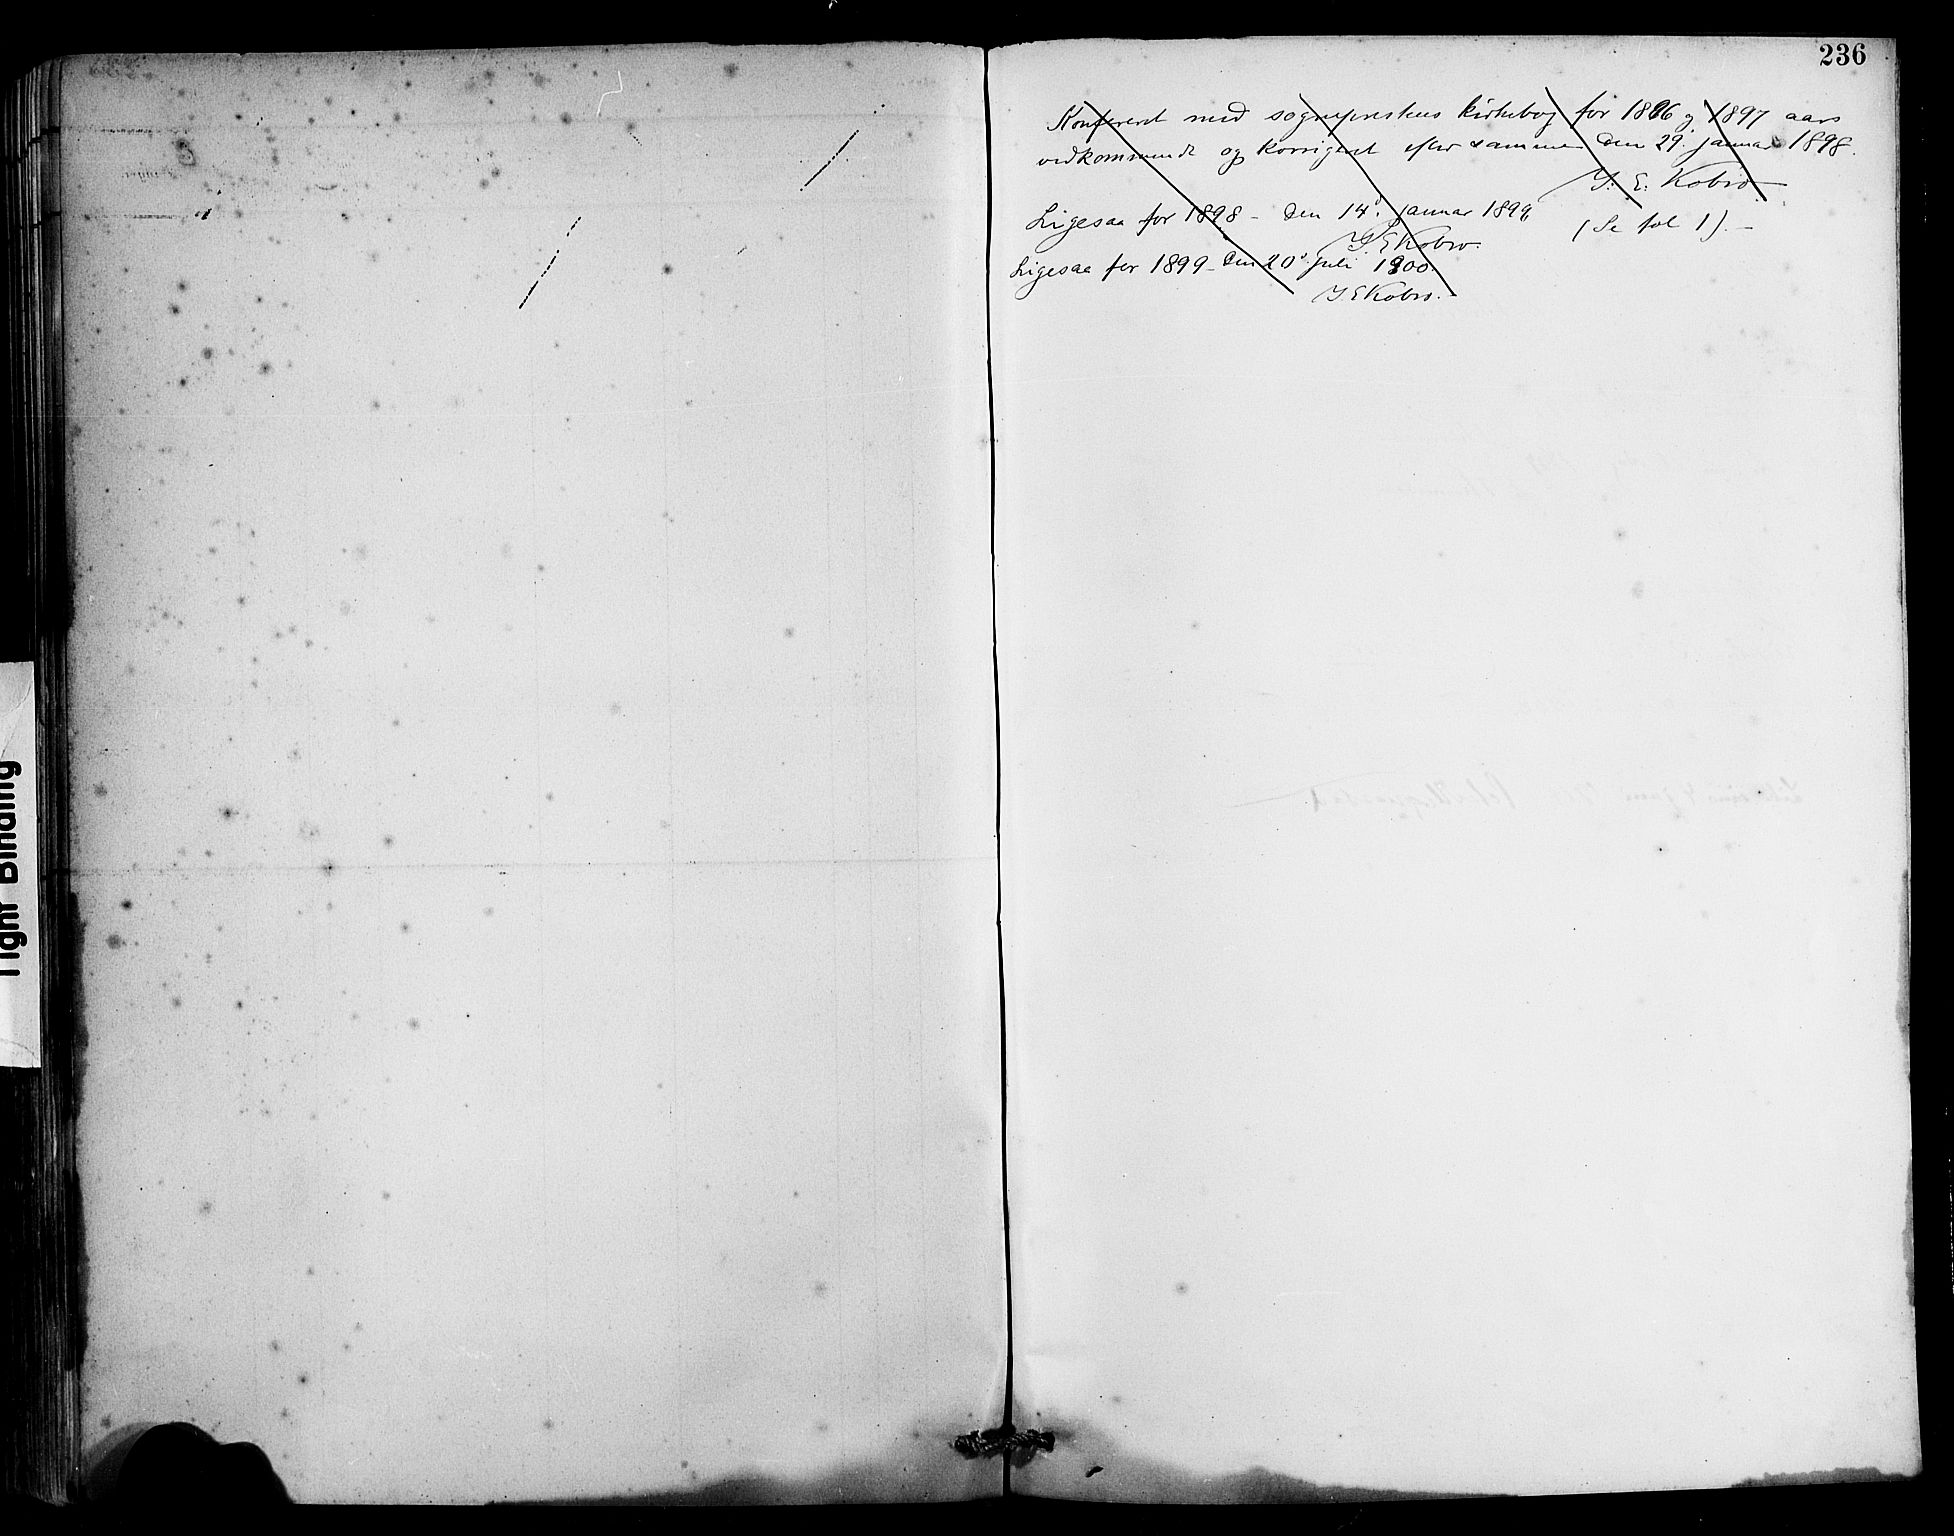 236
Konfereret med sogneprestens kirkebog for 1896 og 1897 aars
vedkommende og korrigeret efter samme den 29. januar 1898.
I. E. Kobro
Ligesaa for 1898 – den 14' januar 1899 (Se fol 1). –
I. E Kobro.
Ligesaa for 1899 – den 20' juli 1900.
I. E Kobro.
Tight Binding